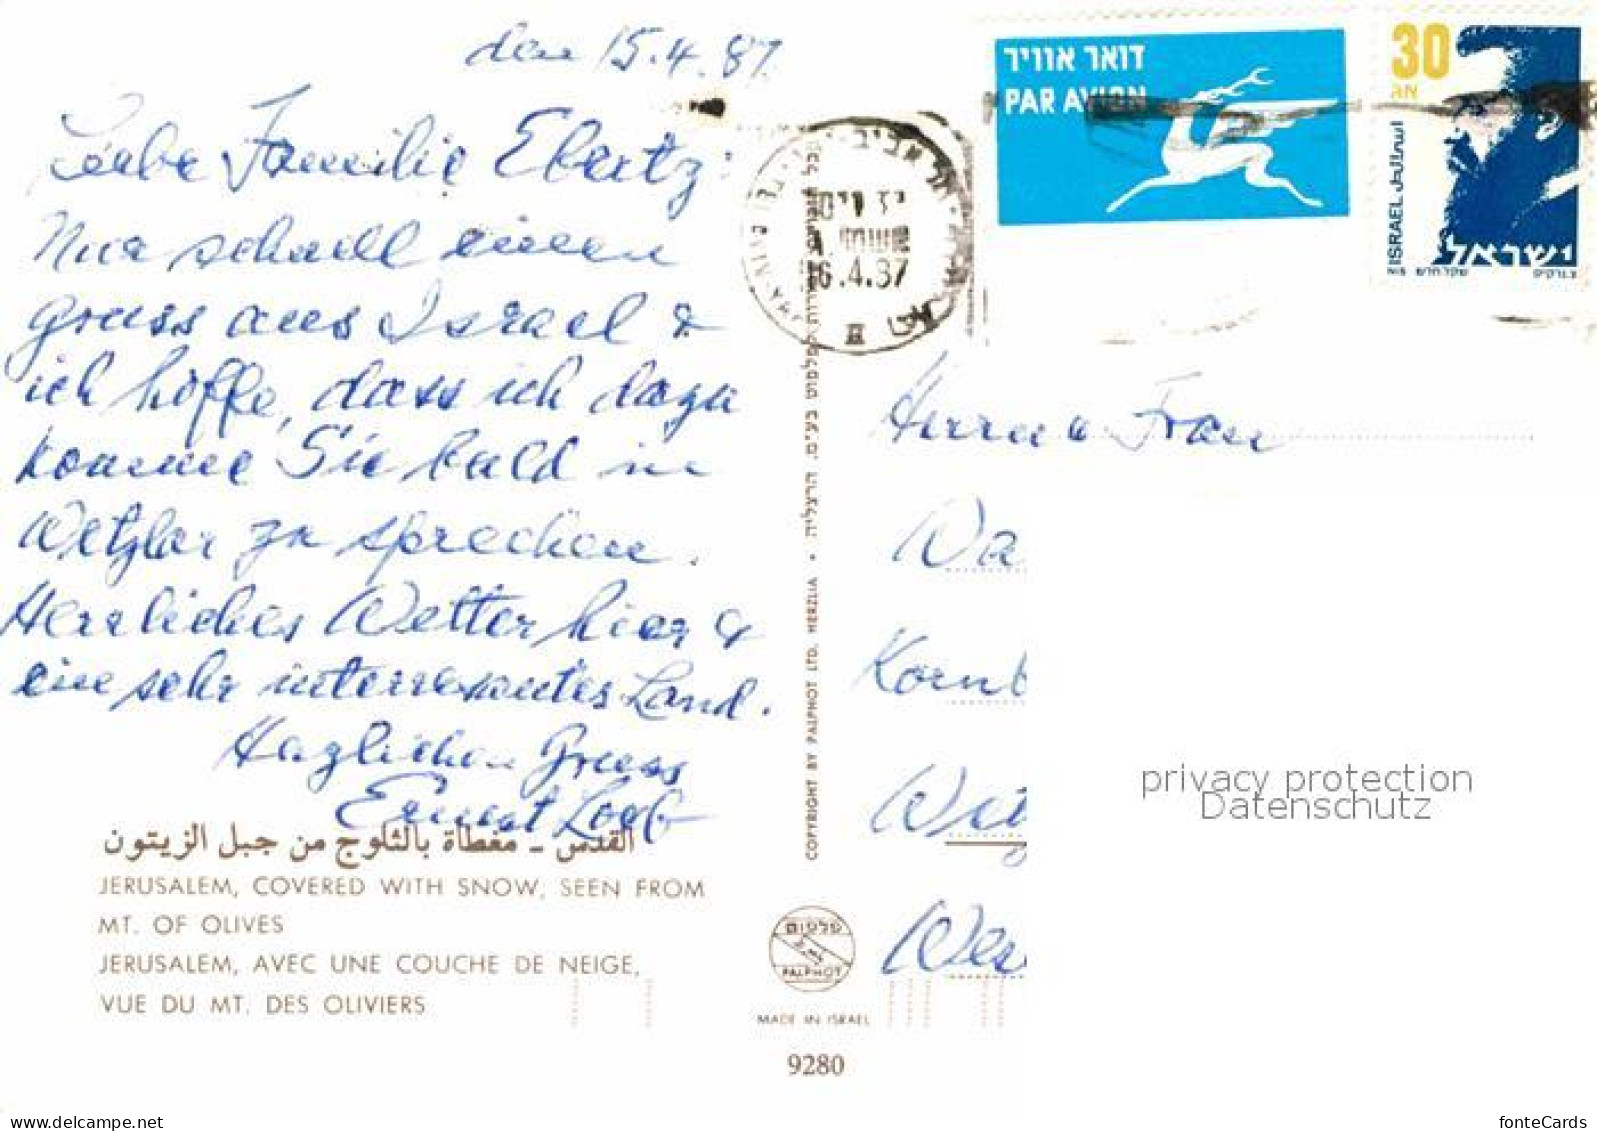 den 15.4.87.
Liebe Familie Ebertz:
Nur schnell einen
Gruss aus Israel &
ich hoffe, dass ich dazu
komme Sie bald in
Wetzlar zu sprechen.
Herrliches Wetter hier &
eine sehr interressantes Land.
Herzlichen Gruss
Ernest Loeb
القدس - مغطاة بالثلوج من جبل الزيتون
JERUSALEM, COVERED WITH SNOW, SEEN FROM
MT. OF OLIVES
JERUSALEM, AVEC UNE COUCHE DE NEIGE,
VUE DU MT. DES OLIVIERS
COPYRIGHT BY PALPHOT LTD. HERZLIA • בע"מ. הרצליה
פלפוט
PALPHOT
MADE IN ISRAEL
9280
16.4.87
דואר אוויר
PAR AVION
30
אג
ISRAEL اسرائيل
ישראל
NIS שקל חדש
Herrn u Frau
Wa
Kornb
Wet
Wes
privacy protection
Datenschutz
fonteCards